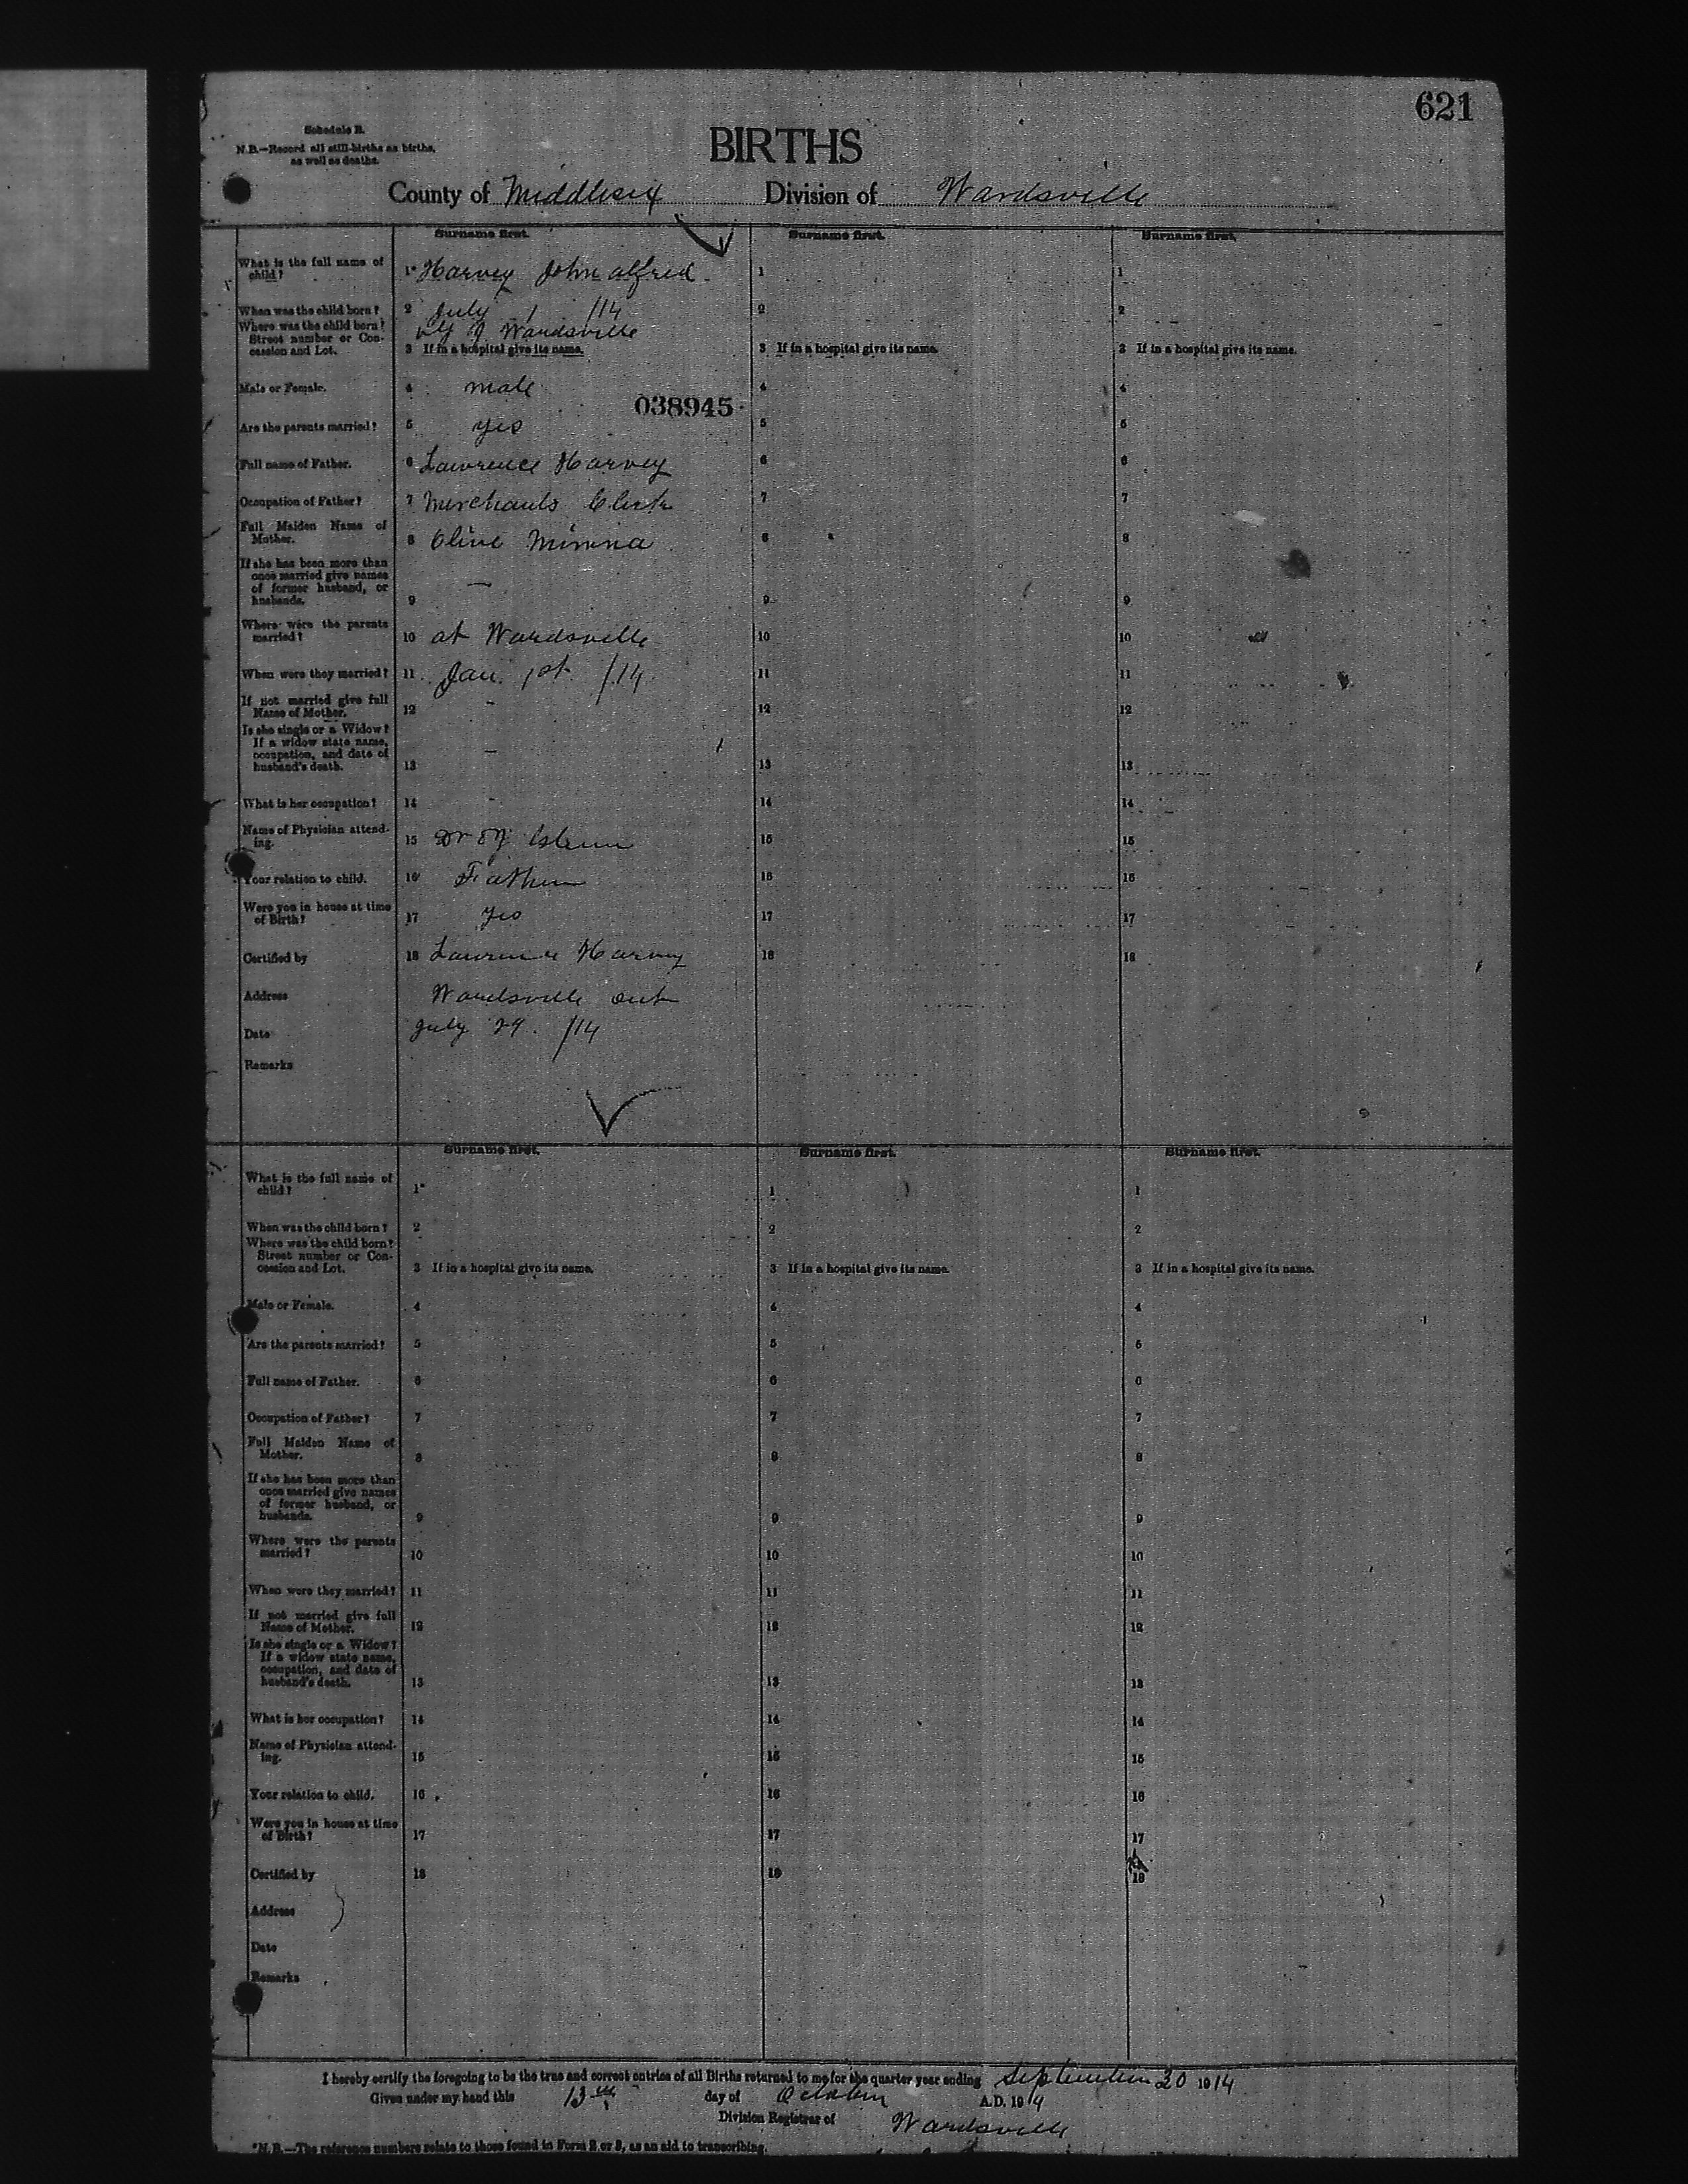 621
Schedule B.
N.B.—Record all still-births as births,
as well as deaths.
BIRTHS
County of Middlesex Division of Wardsville
Surname first. Surname first. Surname first.
What is the full name of child? 1* Harvey John Alfred. 1 1
When was the child born? 2 July 1 /14 2 2
Where was the child born? Street number or Concession and Lot. Wardsville
3 If in a hospital give its name. 3 If in a hospital give its name. 3 If in a hospital give its name.
Male or Female. 4 male 4 4
038945
Are the parents married? 5 yes 5 5
Full name of Father. 6 Lawrence Harvey 6 6
Occupation of Father? 7 Merchants Clerk 7 7
Full Maiden Name of Mother. 8 Olive 8 8
If she has been more than once married give names of former husband, or husbands. 9 — 9 9
Where were the parents married? 10 at Wardsville 10 10
When were they married? 11 Jan. 1st /14. 11 11
If not married give full Name of Mother. 12 - 12 12
Is she single or a Widow? If a widow state name, occupation, and date of husband's death. 13 — 13 13
What is her occupation? 14 - 14 14
Name of Physician attending. 15 Dr 15 15
Your relation to child. 16 Father 16 16
Were you in house at time of Birth? 17 yes 17 17
Certified by 18 Lawrence Harvey 18 18
Address Wardsville Ont
Date July 29. /14
Remarks
Surname first. Surname first. Surname first.
What is the full name of child? 1* 1 1
When was the child born? 2 2 2
Where was the child born? Street number or Concession and Lot. 3 If in a hospital give its name. 3 If in a hospital give its name. 3 If in a hospital give its name.
Male or Female. 4 4 4
Are the parents married? 5 5 5
Full name of Father. 6 6 6
Occupation of Father? 7 7 7
Full Maiden Name of Mother. 8 8 8
If she has been more than once married give names of former husband, or husbands. 9 9 9
Where were the parents married? 10 10 10
When were they married? 11 11 11
If not married give full Name of Mother. 12 12 12
Is she single or a Widow? If a widow state name, occupation, and date of husband's death. 13 13 13
What is her occupation? 14 14 14
Name of Physician attending. 15 15 15
Your relation to child. 16 16 16
Were you in house at time of Birth? 17 17 17
Certified by 18 18 18
Address
Date
Remarks
I hereby certify the foregoing to be the true and correct entries of all Births returned to me for the quarter year ending September 30 1914
Given under my hand this 13th day of October A.D. 1914
Division Registrar of Wardsville
*N.B.—The reference numbers relate to those found in Form 2 or 3, as an aid to transcribing.